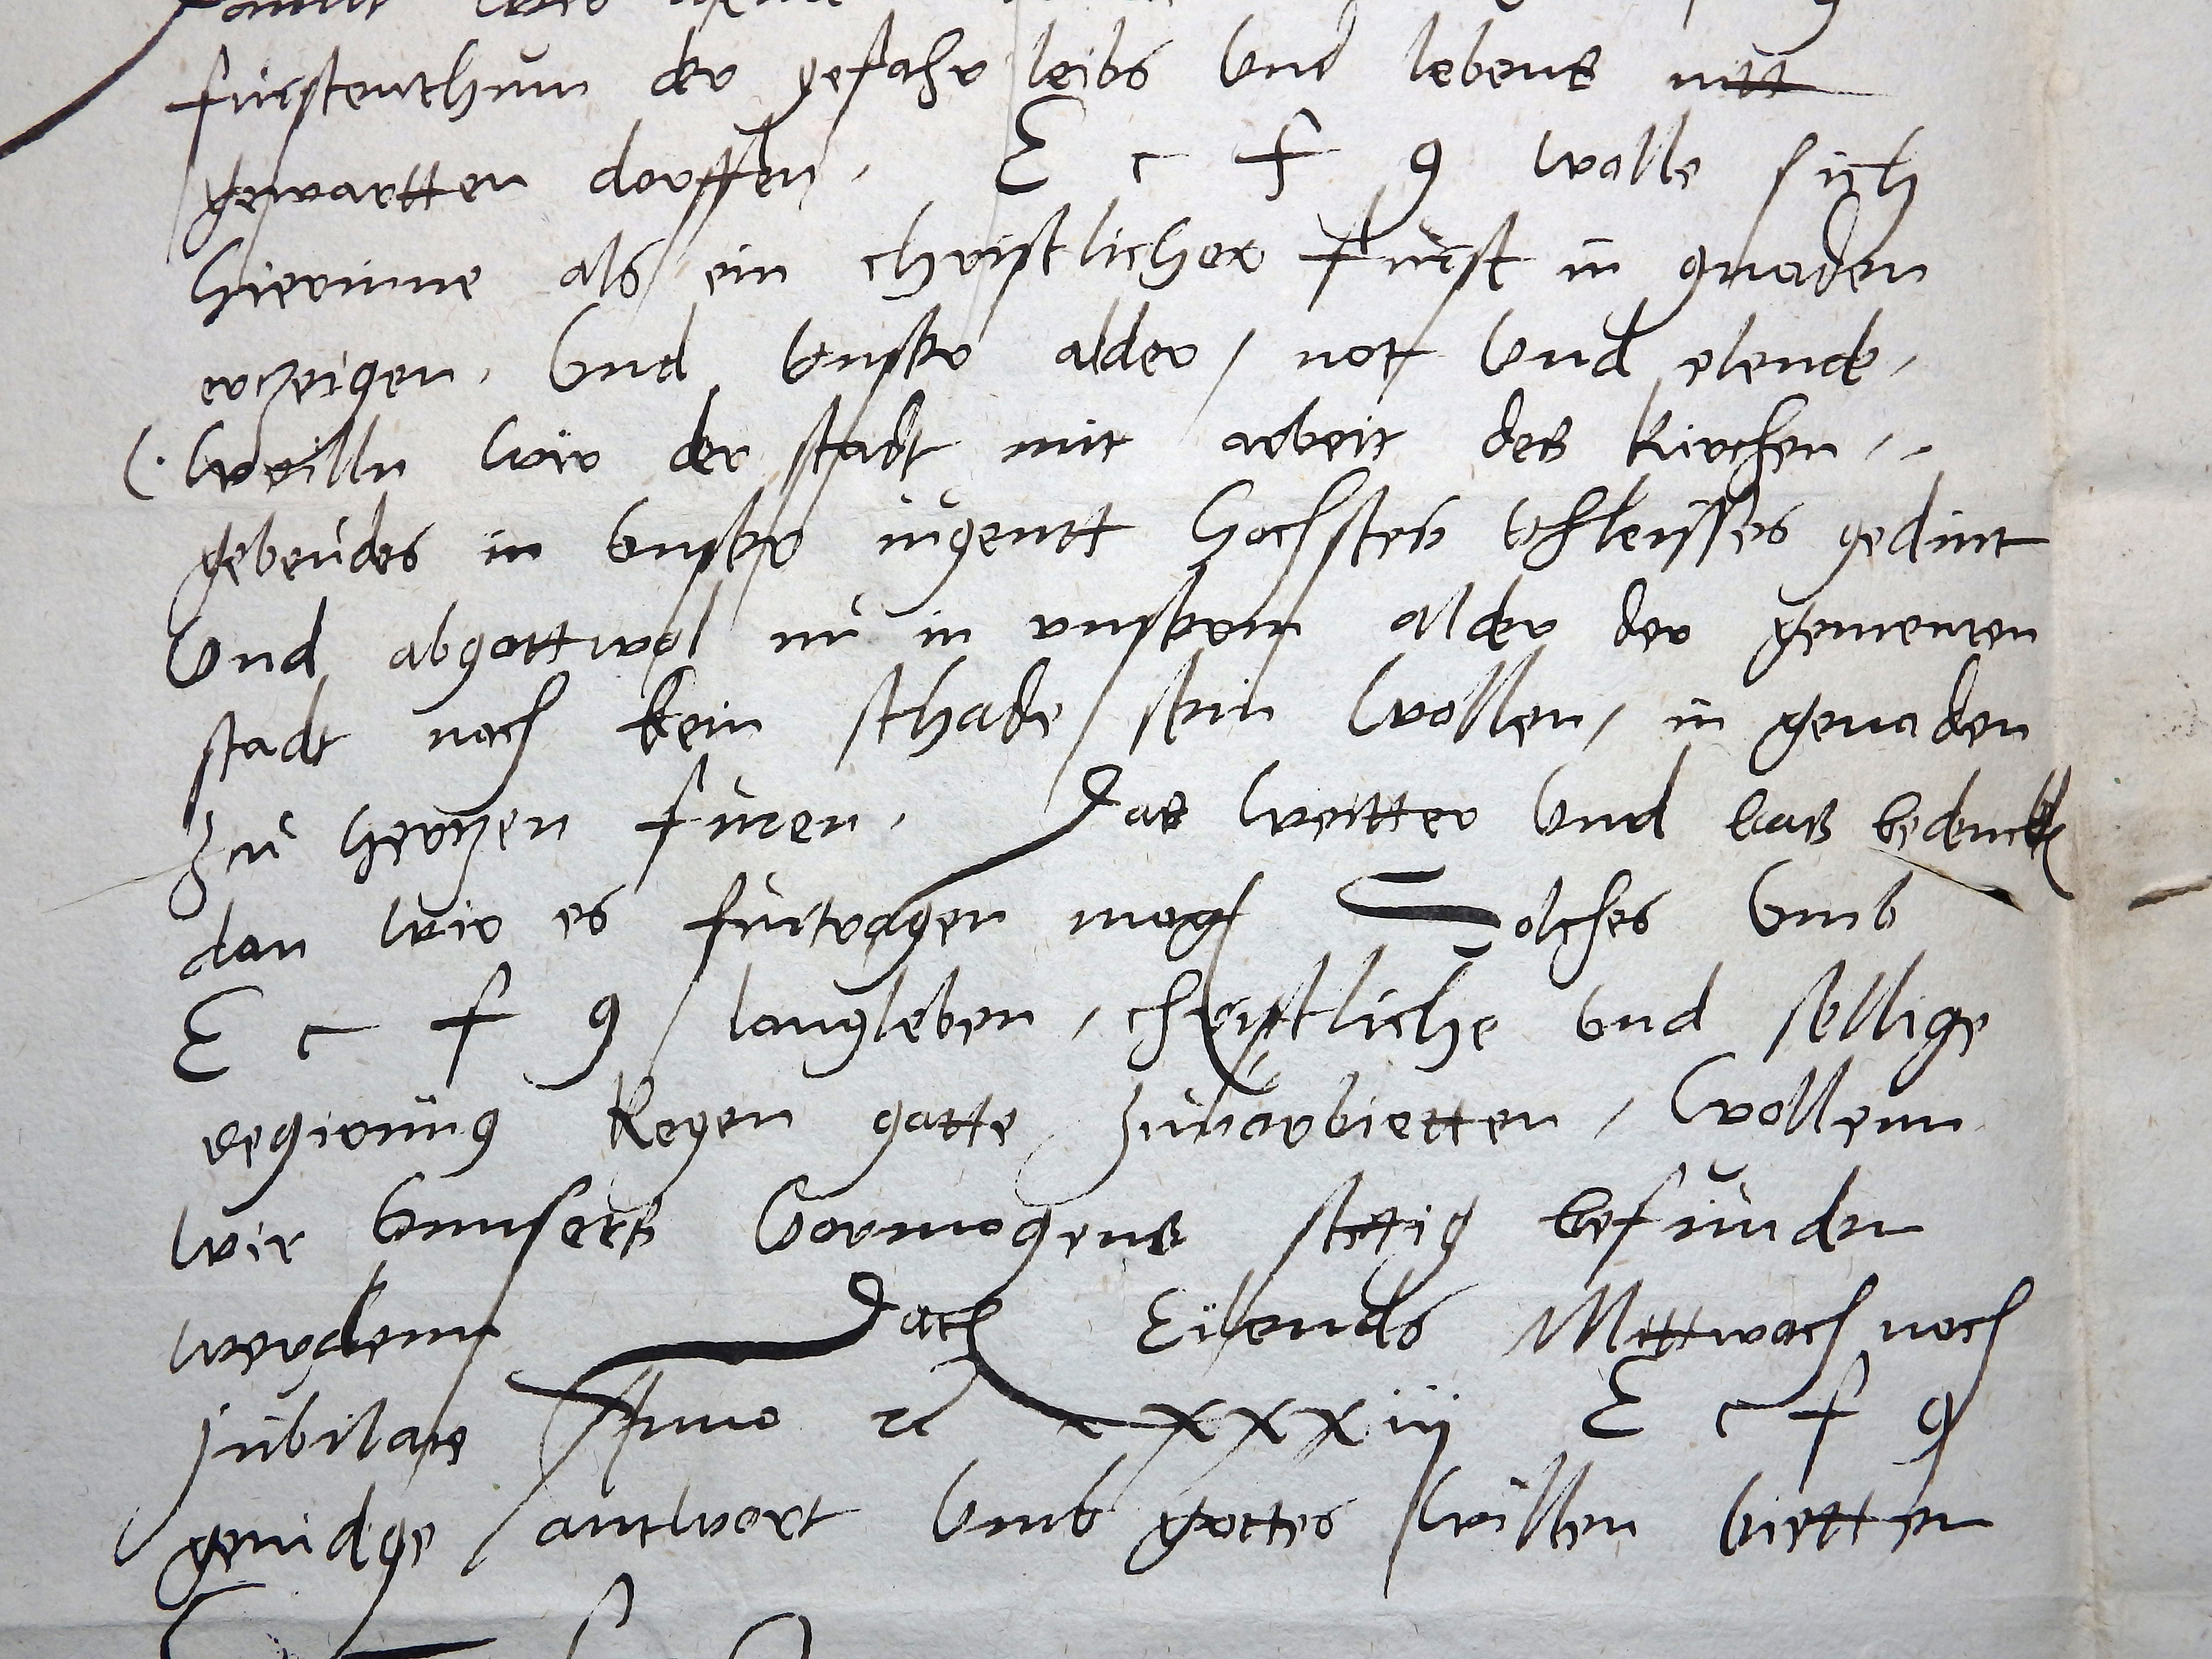 furstenthum der gefahr leibs Vnd lebens nitt
gewartten dorffen, E c f g wolle sich
hierinne als ein christlicher furst in gnaden
erzeigen, Vnd vnser alder, not Vnd elende,
(. weilln wir der stadt mit arbeit des kirchen,,
gebeudes in vnser jugentt hochstes vhleisses gedint
Vnd abgottwol nu in vnserm alder der gemeinen
stadt noch kein schade sein wollen, in genaden
zu herzen furen, Das weitter Vnd bas bedenckn
dan wir es furtragen mogn Solches Vmb
E c f g langleben, christliche vnd sellige
regirung kegen gotte zuvorbietten, wollenn
wir Vnnsers Vormogens stetig befunden
werdenn Dach Eilends Mittwoch noch
jubilate Anno 2c xxxiij E c f g
genidge antwort Vmb gottes willen bietten